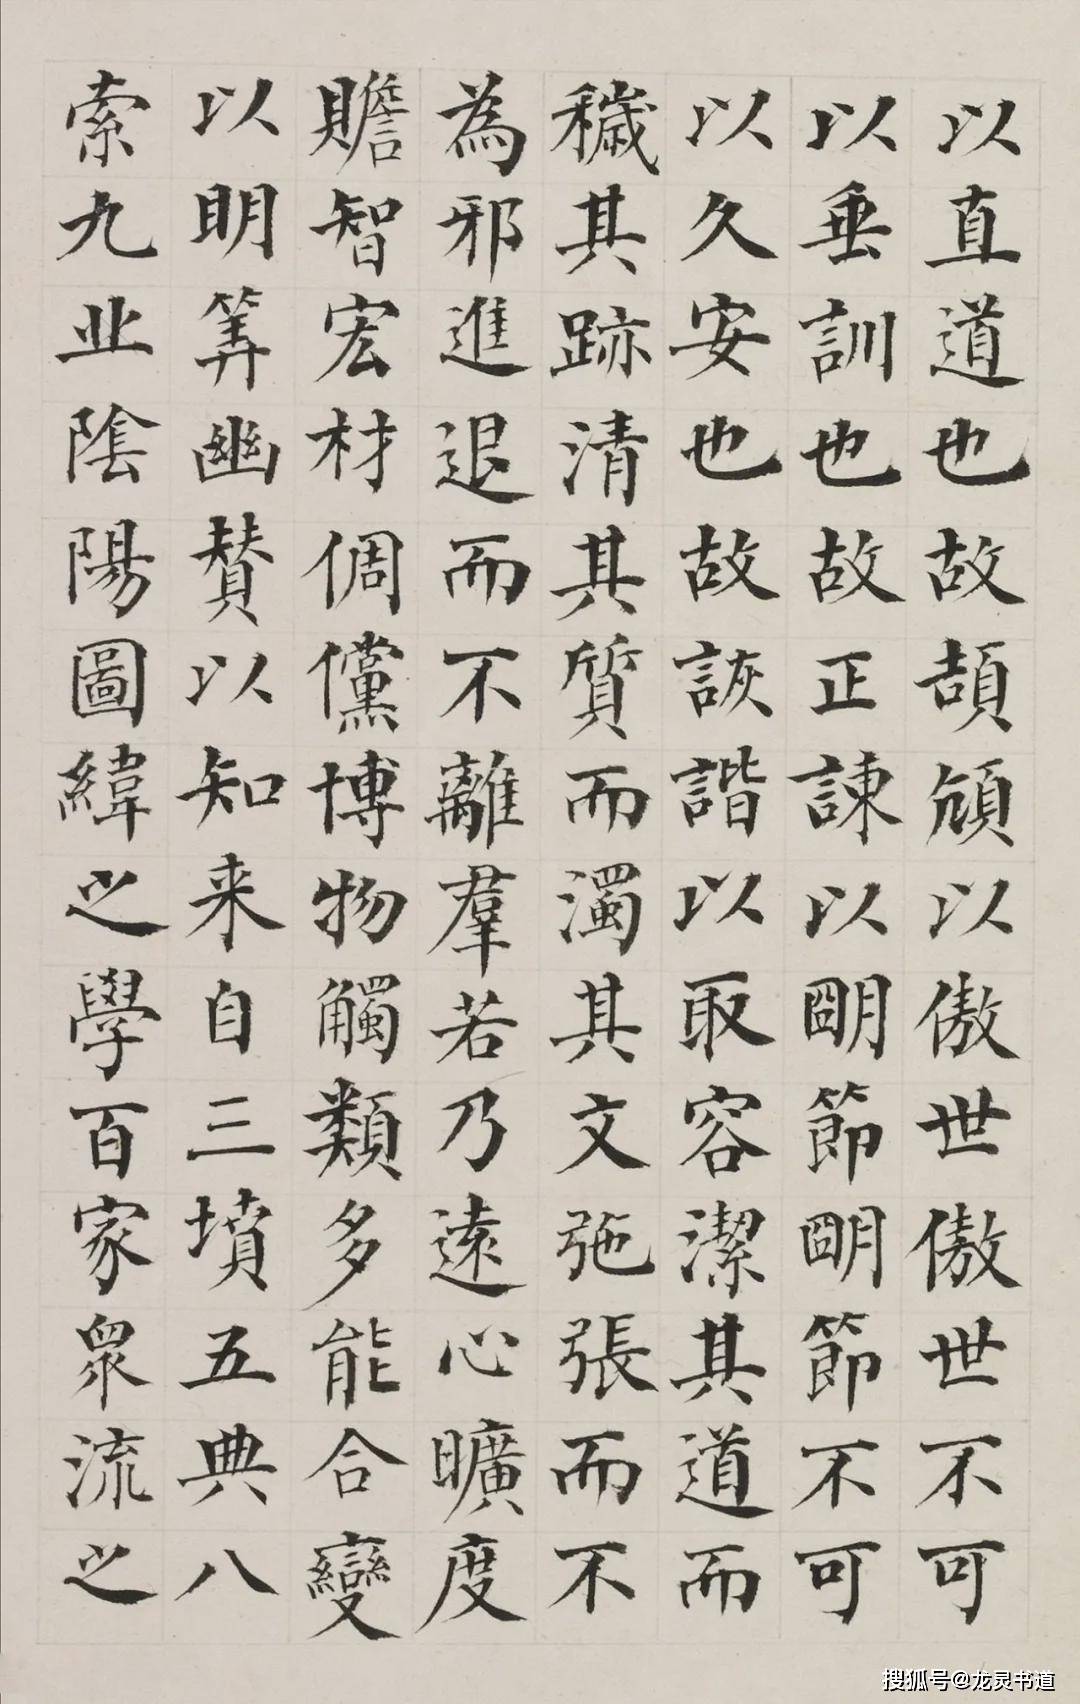 以直道也故頡頏以傲世傲世不可
以垂訓也故正諫以眀節眀節不可
以久安也故詼諧以取容潔其道而
穢其跡清其質而濁其文弛張而不
為邪進退而不離羣若乃遠心曠度
贍智宏材倜儻博物觸類多能合變
以明筭幽贊以知来自三墳五典八
索九丘陰陽圖緯之學百家眾流之
搜狐号@龙灵书道